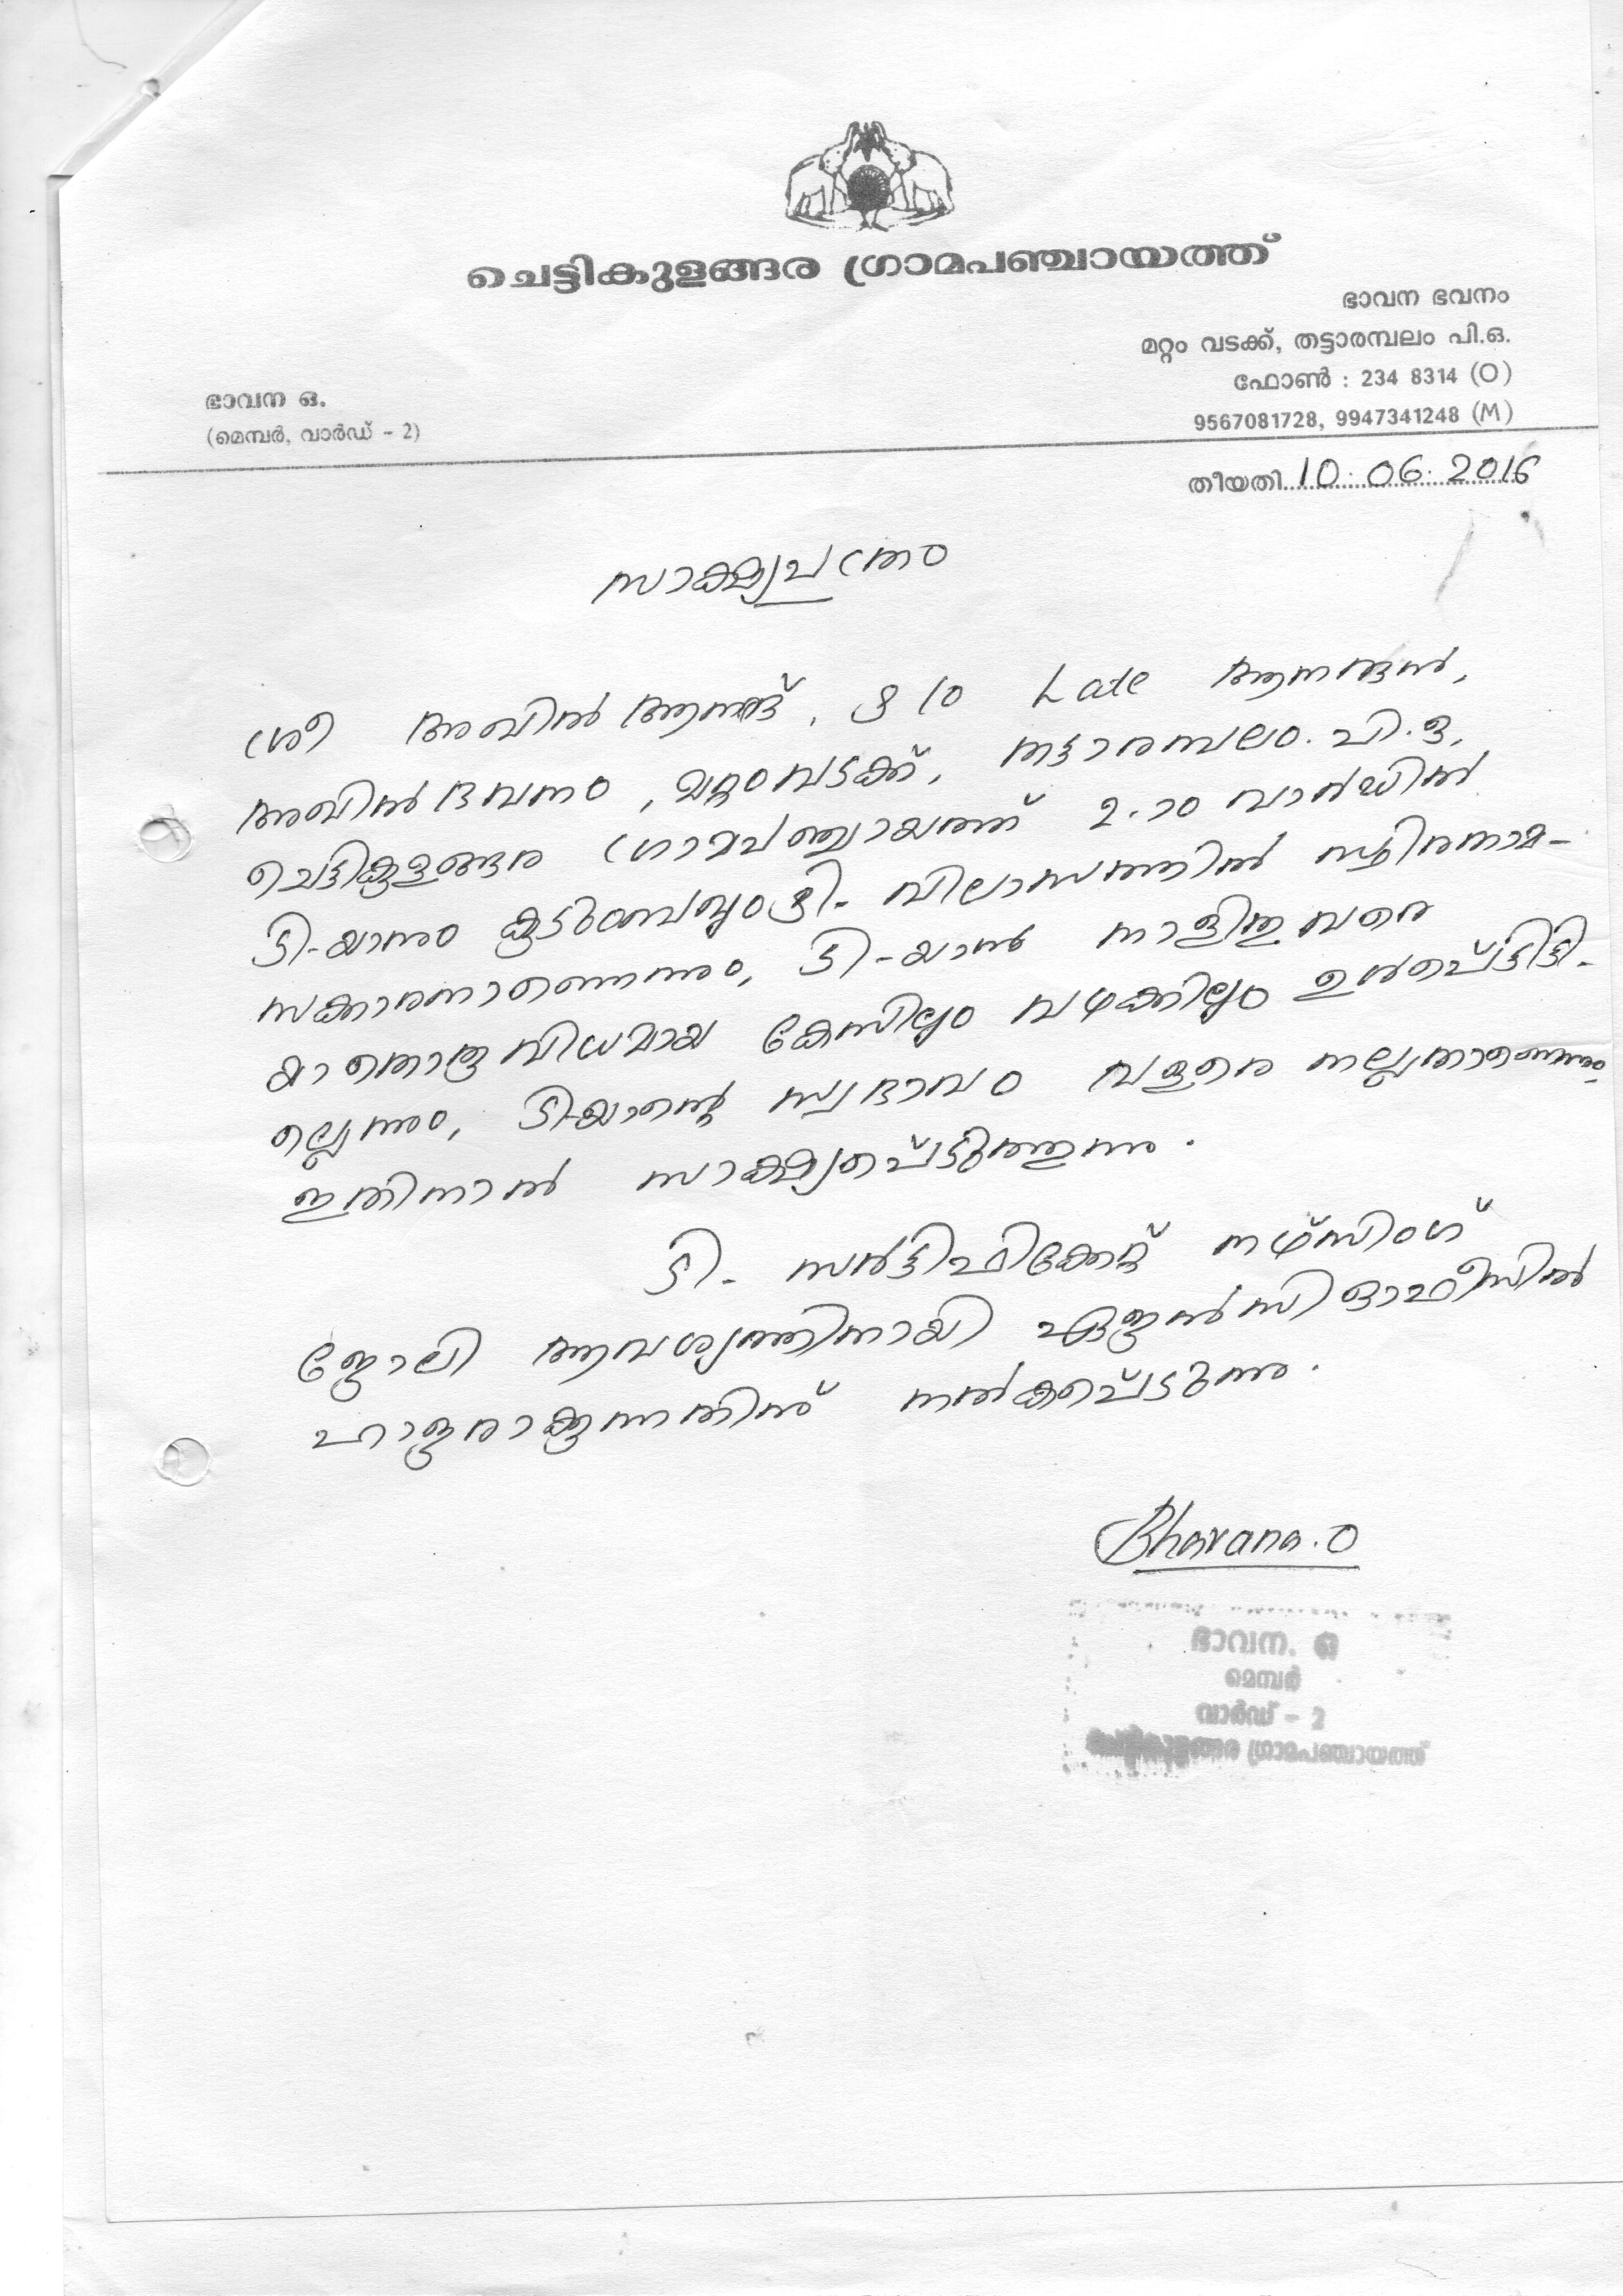 ചെട്ടികുളങ്ങര ഗ്രാമപഞ്ചായത്ത്
ഭാവന ഭവനം
മറ്റം വടക്ക്, തട്ടാരമ്പലം പി.ഒ.
ഫോൺ : 234 8314 (O)
9567081728, 9947341248 (M)
ഭാവന ഒ.
(മെമ്പർ, വാർഡ് - 2)
തീയതി 10.06.2016
സാക്ഷ്യപത്രം
ശ്രീ അഖിൽ ആനന്ദ്, S/o Late ആനന്ദൻ,
അഖിൽ ഭവനം, മറ്റം വടക്ക്, തട്ടാരമ്പലം.പി.ഒ,
ചെട്ടികുളങ്ങര ഗ്രാമപഞ്ചായത്ത് 2-ാo വാർഡിൽ
ടി-യാനും കുടുംബവും ടി- വിലാസത്തിൽ സ്ഥിരതാമ-
സക്കാരനാണെന്നും, ടി-യാൻ നാളിതുവരെ
യാതൊരുവിധമായ കേസിലും വഴക്കിലും ഉൾപ്പെട്ടിട്ടി-
ല്ലെന്നും, ടിയാന്റെ സ്വഭാവം വളരെ നല്ലതാണെന്നും
ഇതിനാൽ സാക്ഷ്യപ്പെടുത്തുന്നു.
ടി- സർട്ടിഫിക്കേറ്റ് നഴ്സിംഗ്
ജോലി ആവശ്യത്തിനായി ഏജൻസി ഓഫീസിൽ
ഹാജരാക്കുന്നതിന് നൽകപ്പെടുന്നു.
Bhavana.O
ഭാവന. ഒ
മെമ്പർ
വാർഡ് - 2
ഗ്രാമപഞ്ചായത്ത്